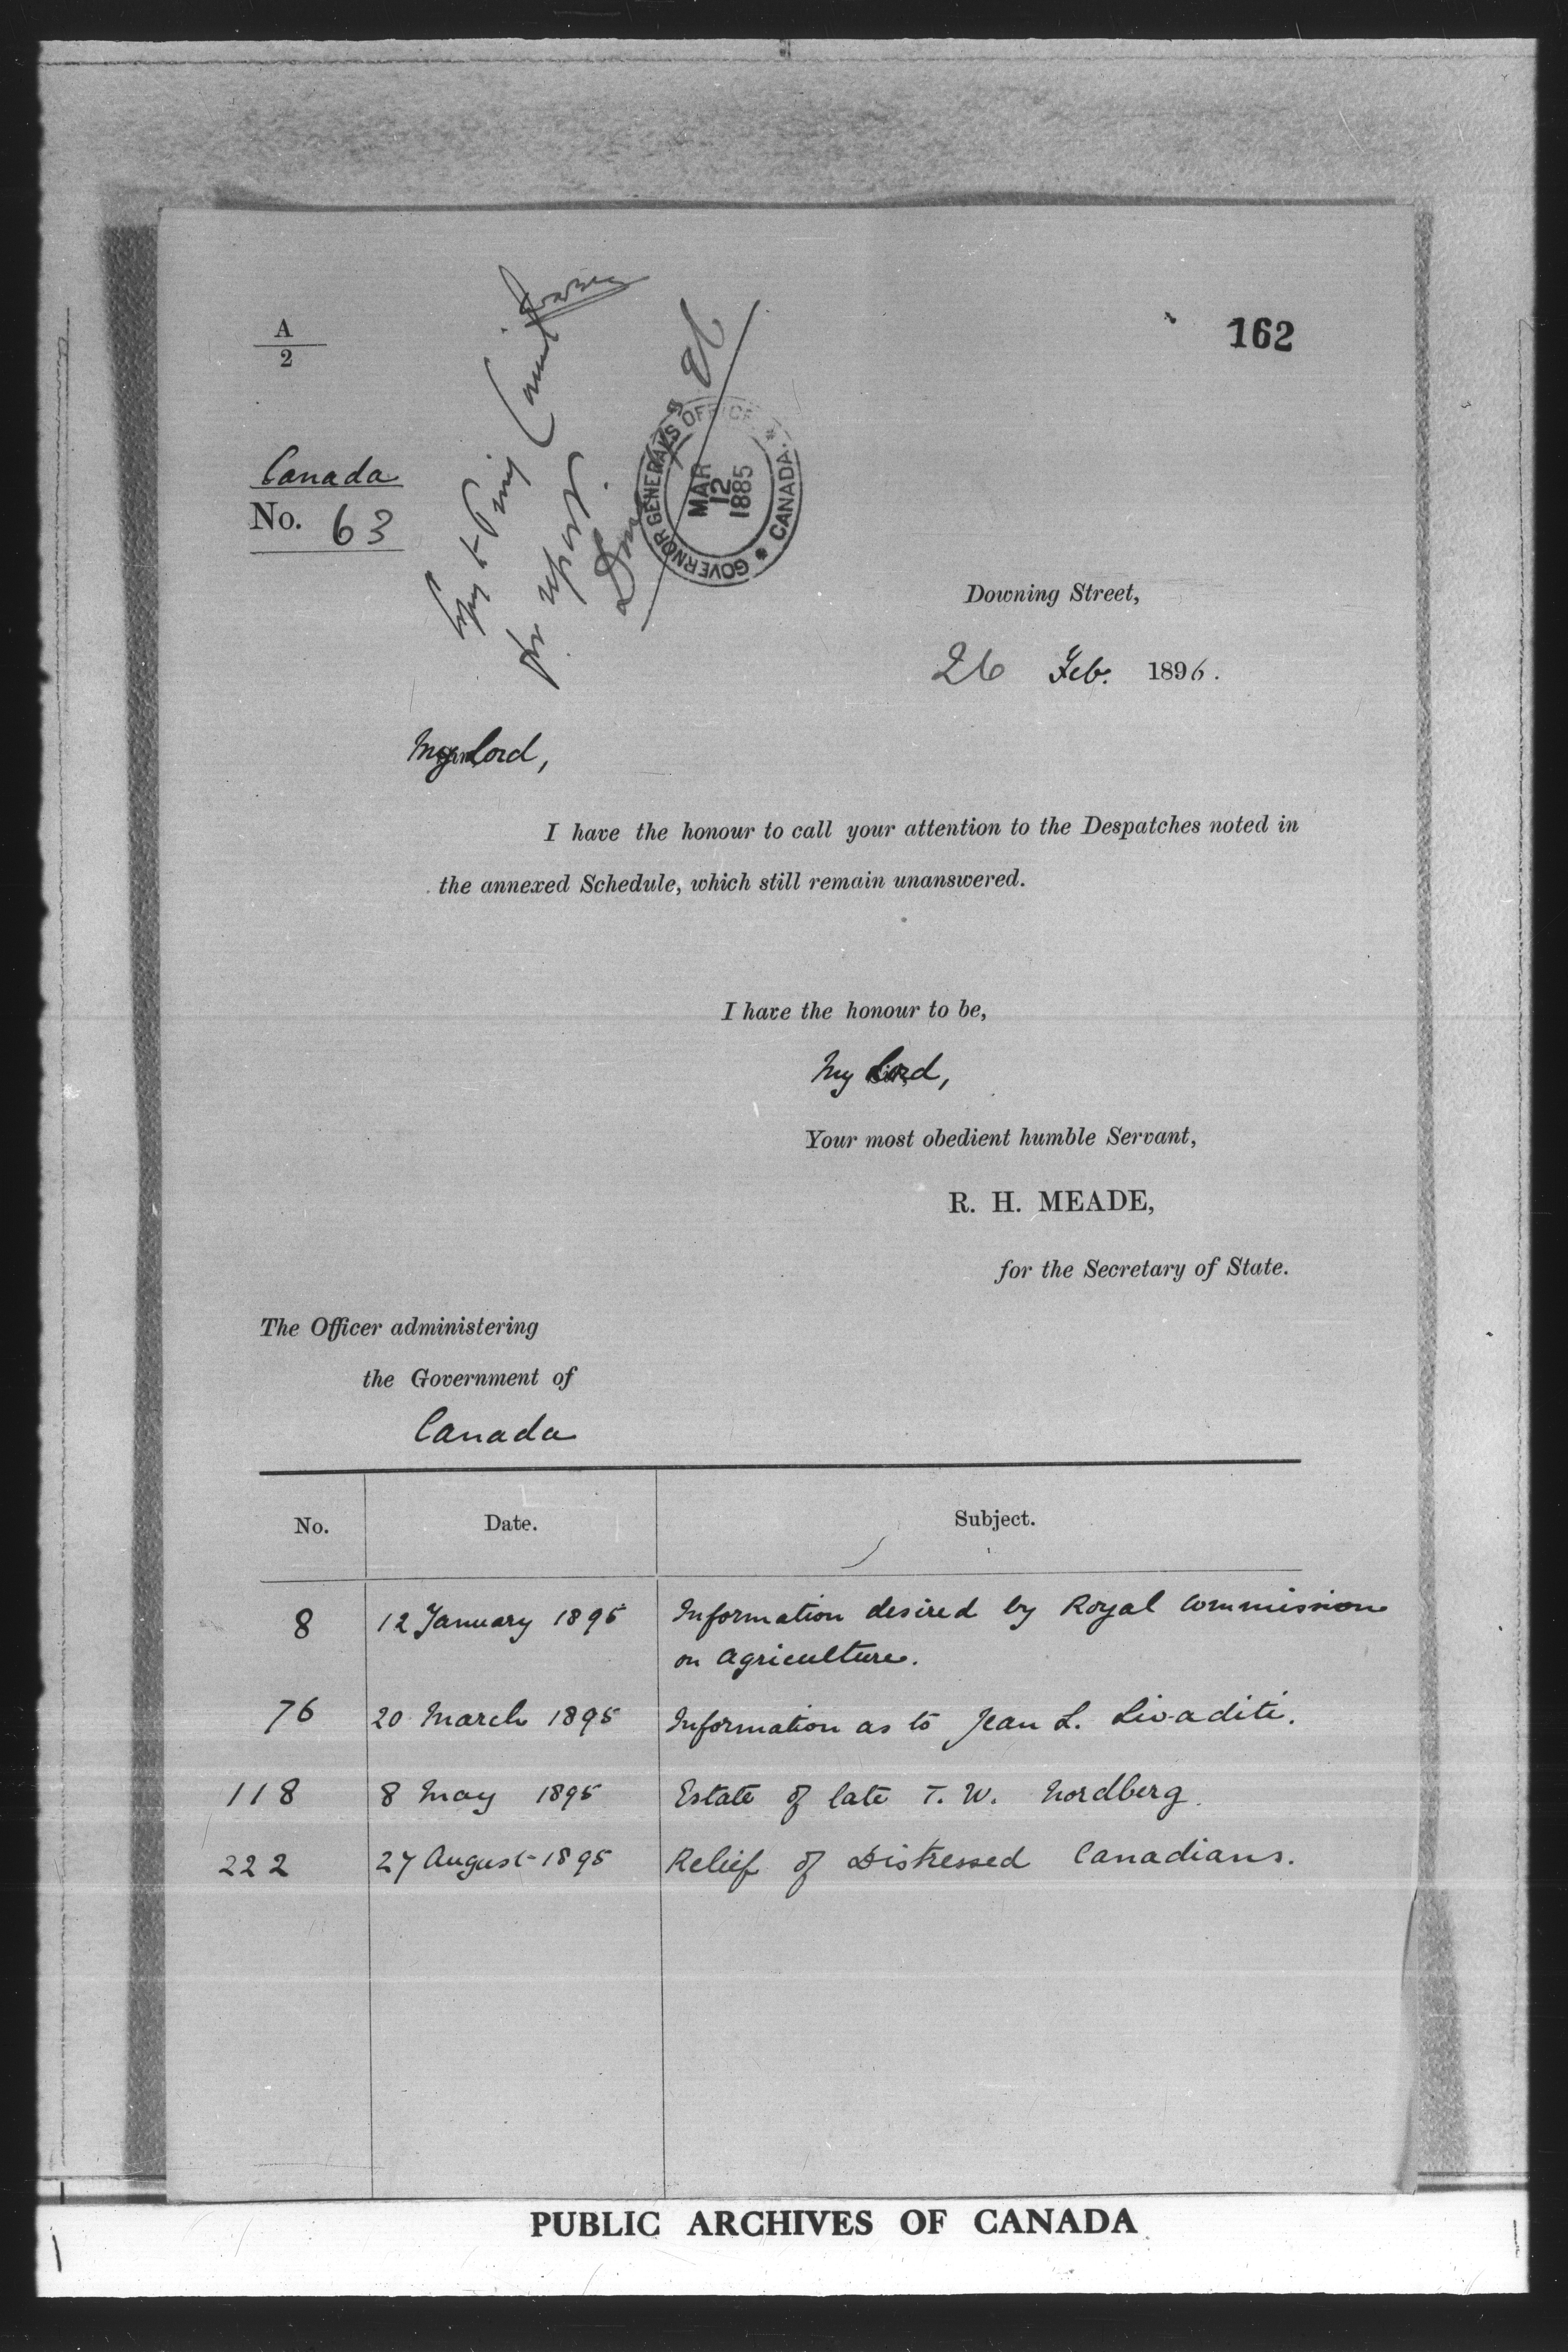 A
2
162
Canada
No. 63
Copy to Privy Council
for report.
GOVERNOR GENERAL'S OFFICE
CANADA
MAR
12
1885
Downing Street,
26 Feb. 1896.
My Lord,
I have the honour to call your attention to the Despatches noted in
the annexed Schedule, which still remain unanswered.
I have the honour to be,
My Lord,
Your most obedient humble Servant,
R. H. MEADE,
for the Secretary of State.
The Officer administering
the Government of
Canada
No. Date. Subject.
8 12 January 1895 Information desired by Royal Commission
on Agriculture.
76 20 March 1895 Information as to Jean L. Livaditi.
118 8 May 1895 Estate of late T. W. Nordberg.
222 27 August 1895 Relief of Distressed Canadians.
PUBLIC ARCHIVES OF CANADA